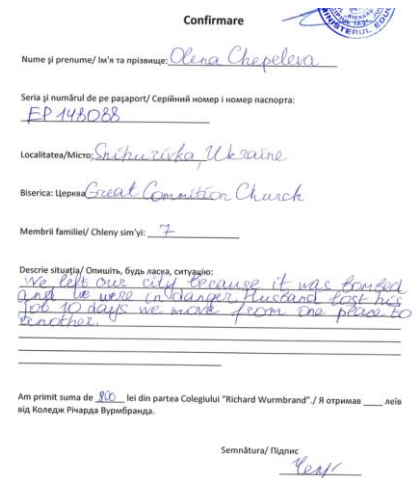 Confirmare
Nume și prenume/ Ім'я та прізвище: Olena Chepeleva
Seria și numărul de pe pașaport/ Серійний номер і номер паспорта:
EP 148088
Localitatea/Місто: Snihurivka, Ukraine
Biserica: Церква Great Commition Church
Membrii familiei/ Chleny sim'yi: 7
Descrie situația/ Опишіть, будь ласка, ситуацію:
We left our city because it was bombed
and we were in danger. Husband lost his
job 10 days we move from one peace to
another.
Am primit suma de 800 lei din partea Colegiului "Richard Wurmbrand"./ Я отримав ____ леїв
від Коледж Річарда Вурмбранда.
Semnătura/ Підпис